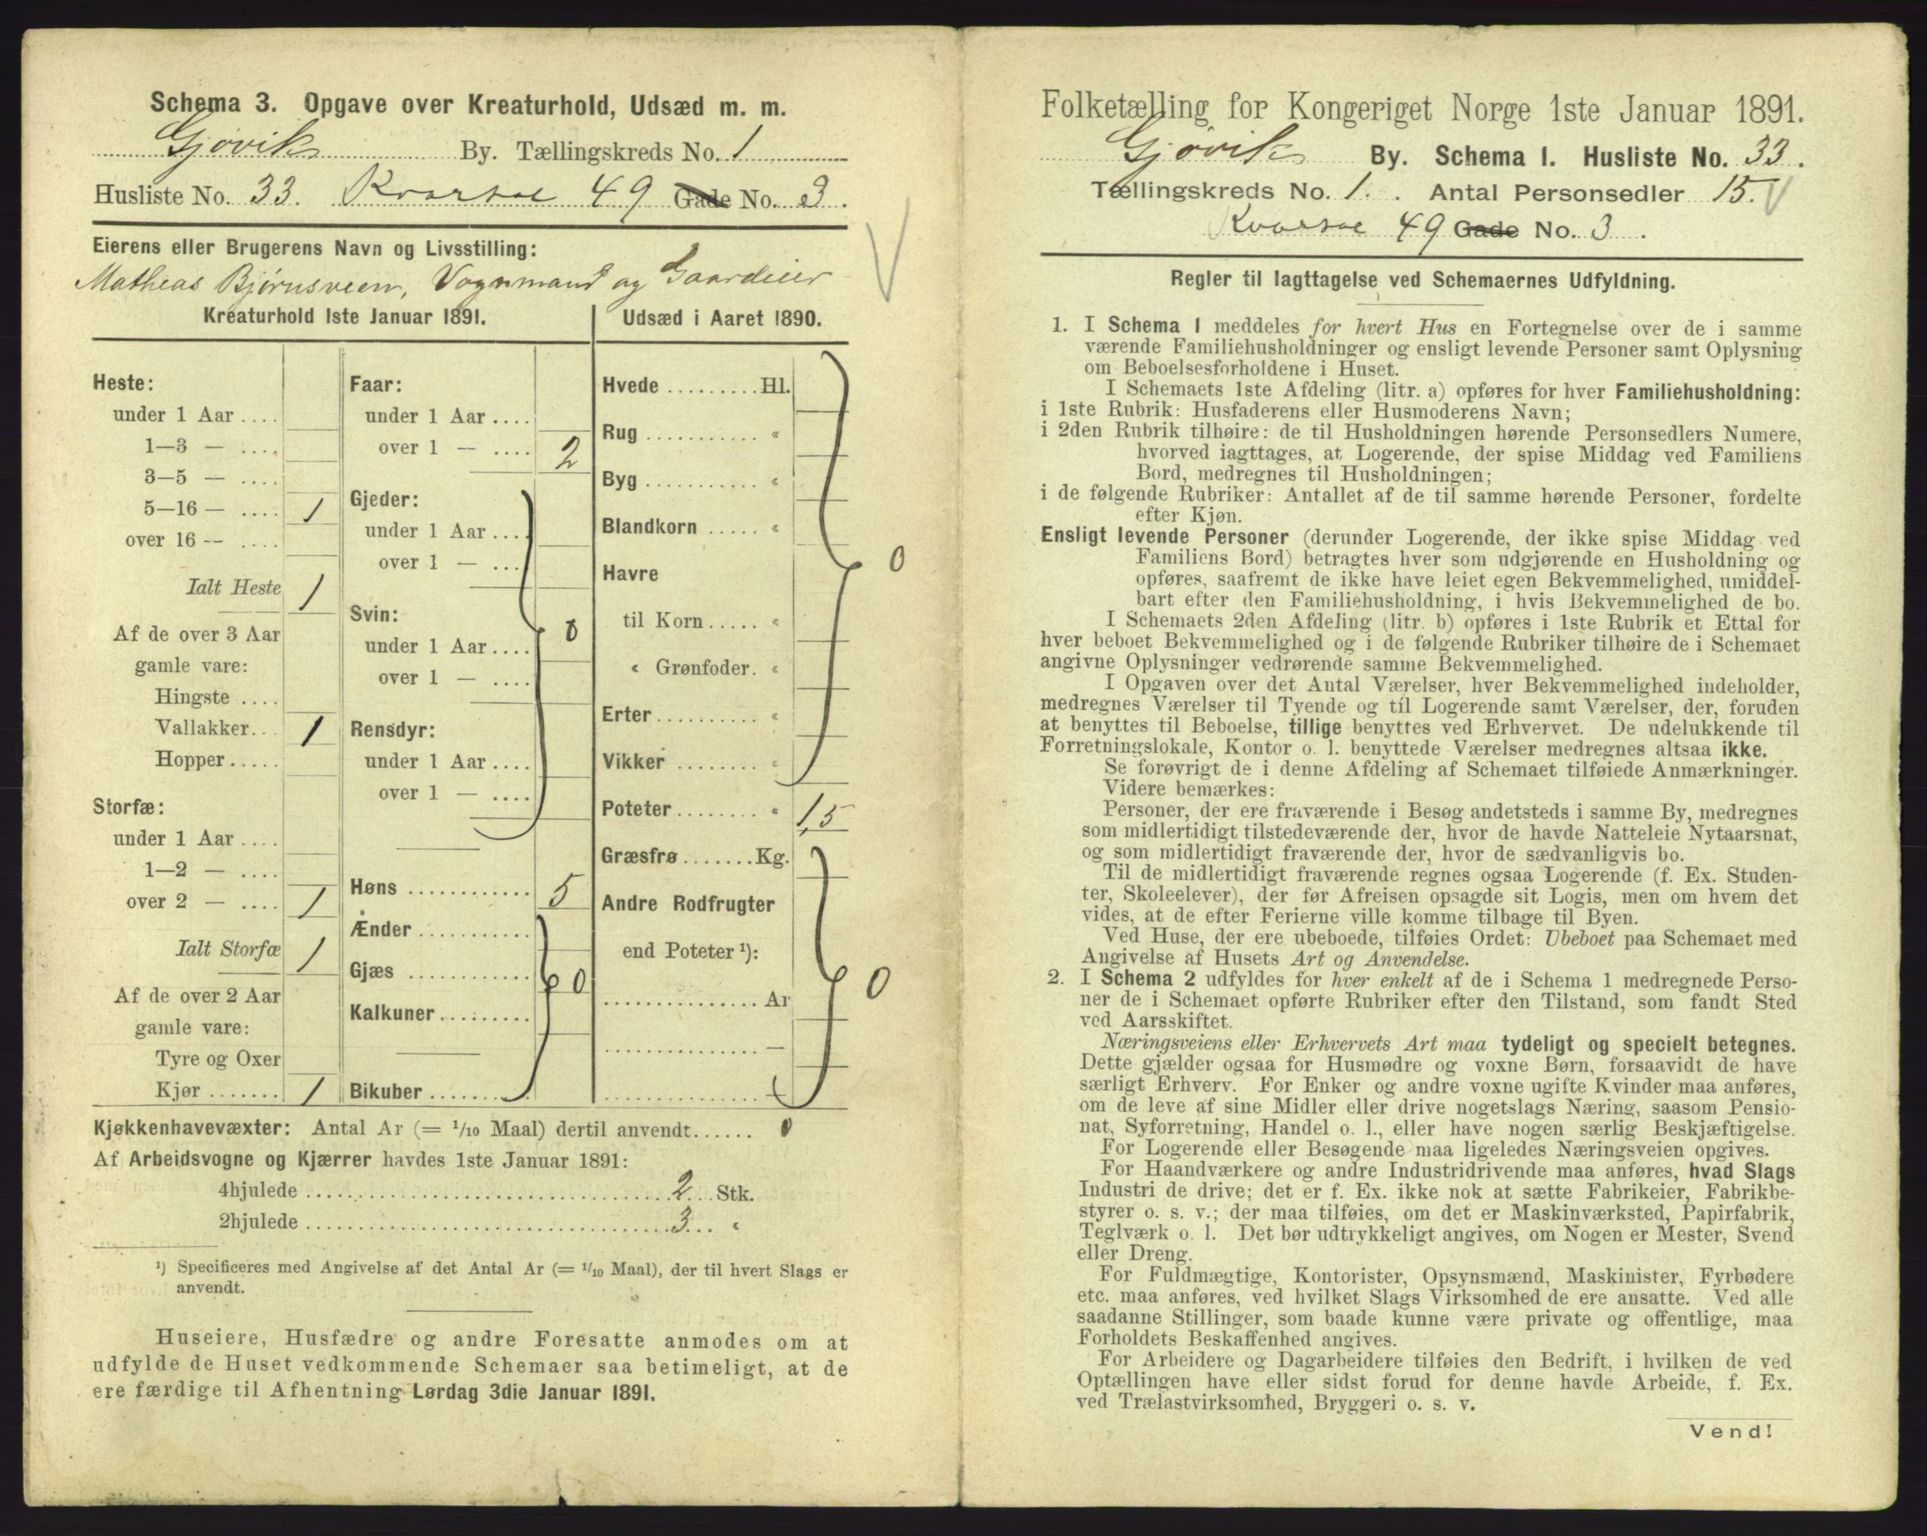 Schema 3. Opgave over Kreaturhold, Udsæd m. m.
Gjøvik By. Tællingskreds No. 1
Husliste No. 33. Kvartal 49 Gade No. 3.
Eierens eller Brugerens Navn og Livsstilling:
Matheas Bjørnsveen, Vognmand og Gaardeier
Kreaturhold 1ste Januar 1891.
Heste:
under 1 Aar ....
1—3 — ....
3—5 — ....
5—16 — .... 1
over 16 — ....
Ialt Heste 1
Af de over 3 Aar
gamle vare:
Hingste ....
Vallakker.. 1
Hopper.....
Storfæ:
under 1 Aar ....
1—2 — ....
over 2 — .... 1
Ialt Storfæ 1
Af de over 2 Aar
gamle vare:
Tyre og Oxer
Kjør ....... 1
Faar:
under 1 Aar ....
over 1 — .... 2
Gjeder:
under 1 Aar ....
over 1 — ....
Svin: 0
under 1 Aar ....
over 1 — ....
Rensdyr:
under 1 Aar ....
over 1 — ....
Høns ............ 5
Ænder ...........
Gjæs ............ 0
Kalkuner.........
Bikuber .........
Udsæd i Aaret 1890.
Hvede ......... Hl.
Rug ........... "
Byg ........... "
Blandkorn ..... " 0
Havre
til Korn ..... "
" Grønfoder. "
Erter ......... "
Vikker ........ "
Poteter ........ " 1,5
Græsfrø ....... Kg.
Andre Rodfrugter
end Poteter ¹): 0
............... Ar
............... —
............... —
Kjøkkenhavevæxter: Antal Ar (= 1/10 Maal) dertil anvendt ...... 0
Af Arbeidsvogne og Kjærrer havdes 1ste Januar 1891:
4hjulede .................... 2 Stk.
2hjulede .................... 3 "
¹) Specificeres med Angivelse af det Antal Ar (= 1/10 Maal), der til hvert Slags er
anvendt.
Huseiere, Husfædre og andre Foresatte anmodes om at
udfylde de Huset vedkommende Schemaer saa betimeligt, at de
ere færdige til Afhentning Lørdag 3die Januar 1891.
Folketælling for Kongeriget Norge 1ste Januar 1891.
Gjøvik By. Schema I. Husliste No. 33.
Tællingskreds No. 1. Antal Personsedler 15.
Kvartal 49 Gade No. 3.
Regler til Iagttagelse ved Schemaernes Udfyldning.
1. I Schema 1 meddeles for hvert Hus en Fortegnelse over de i samme
værende Familiehusholdninger og ensligt levende Personer samt Oplysning
om Beboelsesforholdene i Huset.
I Schemaets 1ste Afdeling (litr. a) opføres for hver Familiehusholdning:
i 1ste Rubrik: Husfaderens eller Husmoderens Navn;
i 2den Rubrik tilhøire: de til Husholdningen hørende Personsedlers Numere,
hvorved iagttages, at Logerende, der spise Middag ved Familiens
Bord, medregnes til Husholdningen;
i de følgende Rubriker: Antallet af de til samme hørende Personer, fordelte
efter Kjøn.
Ensligt levende Personer (derunder Logerende, der ikke spise Middag ved
Familiens Bord) betragtes hver som udgjørende en Husholdning og
opføres, saafremt de ikke have leiet egen Bekvemmelighed, umiddel-
bart efter den Familiehusholdning, i hvis Bekvemmelighed de bo.
I Schemaets 2den Afdeling (litr. b) opføres i 1ste Rubrik et Ettal for
hver beboet Bekvemmelighed og i de følgende Rubriker tilhøire de i Schemaet
angivne Oplysninger vedrørende samme Bekvemmelighed.
I Opgaven over det Antal Værelser, hver Bekvemmelighed indeholder,
medregnes Værelser til Tyende og til Logerende samt Værelser, der, foruden
at benyttes til Beboelse, tillige benyttes ved Erhvervet. De udelukkende til
Forretningslokale, Kontor o. l. benyttede Værelser medregnes altsaa ikke.
Se forøvrigt de i denne Afdeling af Schemaet tilføiede Anmærkninger.
Videre bemærkes:
Personer, der ere fraværende i Besøg andetsteds i samme By, medregnes
som midlertidigt tilstedeværende der, hvor de havde Natteleie Nytaarsnat,
og som midlertidigt fraværende der, hvor de sædvanligvis bo.
Til de midlertidigt fraværende regnes ogsaa Logerende (f. Ex. Studen-
ter, Skoleelever), der før Afreisen opsagde sit Logis, men om hvem det
vides, at de efter Ferierne ville komme tilbage til Byen.
Ved Huse, der ere ubeboede, tilføies Ordet: Ubeboet paa Schemaet med
Angivelse af Husets Art og Anvendelse.
2. I Schema 2 udfyldes for hver enkelt af de i Schema 1 medregnede Perso-
ner de i Schemaet opførte Rubriker efter den Tilstand, som fandt Sted
ved Aarsskiftet.
Næringsveiens eller Erhvervets Art maa tydeligt og specielt betegnes.
Dette gjælder ogsaa for Husmødre og voxne Børn, forsaavidt de have
særligt Erhverv. For Enker og andre voxne ugifte Kvinder maa anføres,
om de leve af sine Midler eller drive nogetslags Næring, saasom Pensio-
nat, Syforretning, Handel o. l., eller have nogen særlig Beskjæftigelse.
For Logerende eller Besøgende maa ligeledes Næringsveien opgives.
For Haandværkere og andre Industridrivende maa anføres, hvad Slags
Industri de drive; det er f. Ex. ikke nok at sætte Fabrikeier, Fabrikbe-
styrer o. s. v.; der maa tilføies, om det er Maskinværksted, Papirfabrik,
Teglværk o. l. Det bør udtrykkeligt angives, om Nogen er Mester, Svend
eller Dreng.
For Fuldmægtige, Kontorister, Opsynsmænd, Maskinister, Fyrbødere
etc. maa anføres, ved hvilket Slags Virksomhed de ere ansatte. Ved alle
saadanne Stillinger, som baade kunne være private og offentlige, maa
Forholdets Beskaffenhed angives.
For Arbeidere og Dagarbeidere tilføies den Bedrift, i hvilken de ved
Optællingen have eller sidst forud for denne havde Arbeide, f. Ex.
ved Trælastvirksomhed, Bryggeri o. s. v.
Vend!